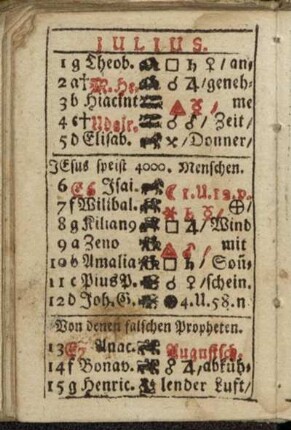 IULIUS.
1 g Theob. □ ♄ ♀ / an-
2 a † M. He. ☌ ♃ / geneh-
3 b Hiacint △ ☿ / me
4 c † Udalr. ☌ ♂ / Zeit /
5 d Elisab. / Donner /
JEsus speist 4000. Menschen.
6 E6 Isai. ☾ 1. U. 12. v.
7 f Wilibal. ♄ ☿ / ⊕ /
8 g Kilian9 □ ♃ / Wind
9 a Zeno △ ♂ / mit
10 b Amalia □ ♄ / Soñ-
11 c Pius P. ☌ ♀ / schein.
12 d Joh. G. ● 4. U. 58. n
Von denen falschen Propheten.
13 E7 Anac. Augustsch.
14 f Bonav. ☌ ♃ / abküh-
15 g Henric. lender Luft /